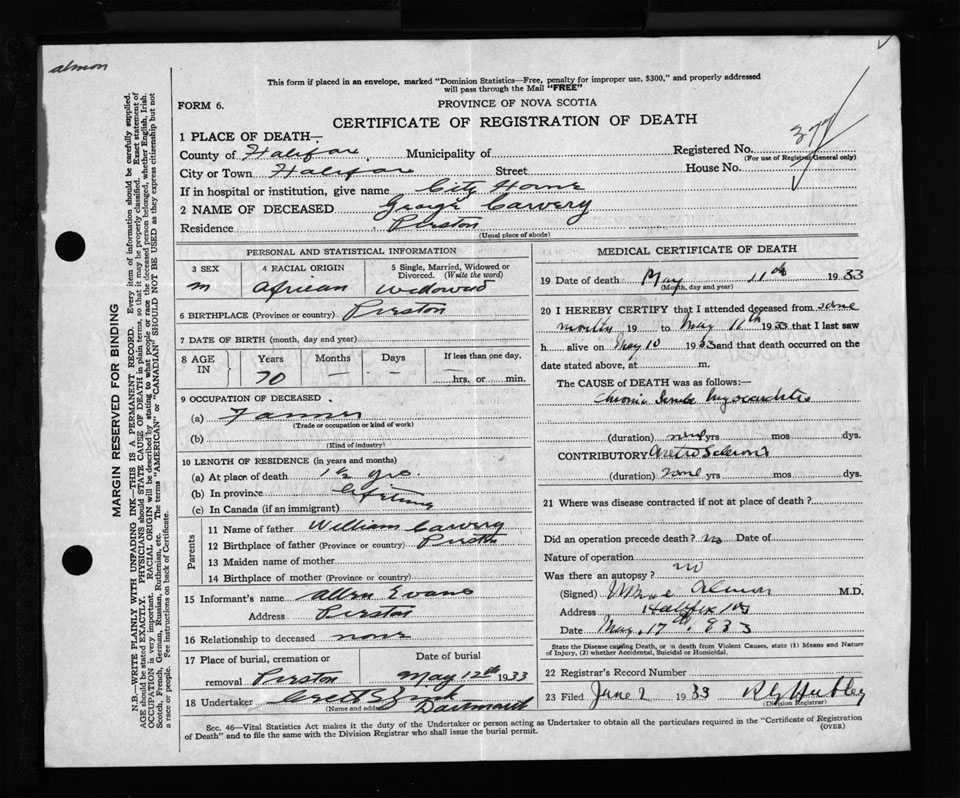 almon
This form if placed in an envelope, marked "Dominion Statistics—Free, penalty for improper use, $300," and properly addressed
will pass through the Mail "FREE"
FORM 6.
PROVINCE OF NOVA SCOTIA
CERTIFICATE OF REGISTRATION OF DEATH
377
1 PLACE OF DEATH—
County of Halifax Municipality of Registered No.
(For use of Registrar General only)
City or Town Halifax Street House No.
If in hospital or institution, give name City Home
2 NAME OF DECEASED George Carvery
Residence Preston
(Usual place of abode)
PERSONAL AND STATISTICAL INFORMATION
3 SEX 4 RACIAL ORIGIN 5 Single, Married, Widowed or
Divorced. (Write the word)
m African Widowed
6 BIRTHPLACE (Province or country) Preston
7 DATE OF BIRTH (month, day and year)
8 AGE IN Years Months Days If less than one day,
70 — — hrs. or min.
9 OCCUPATION OF DECEASED
(a) Farmer
(Trade or occupation or kind of work)
(b)
(Kind of industry)
10 LENGTH OF RESIDENCE (in years and months)
(a) At place of death 1½ yrs.
(b) In province Lifetime
(c) In Canada (if an immigrant)
Parents
11 Name of father William Carvery
12 Birthplace of father (Province or country) Preston
13 Maiden name of mother
14 Birthplace of mother (Province or country)
15 Informant's name Allen Evans
Address Preston
16 Relationship to deceased none
17 Place of burial, cremation or Date of burial
removal Preston May 12th 1933
18 Undertaker Dartmouth
(Name and address)
MEDICAL CERTIFICATE OF DEATH
19 Date of death May 11th 1933
(Month, day and year)
20 I HEREBY CERTIFY that I attended deceased from some
months 19 to May 11th 1933 that I last saw
h alive on May 10 1933 and that death occurred on the
date stated above, at m.
The CAUSE OF DEATH was as follows:—
Chronic Senile Myocarditis
(duration) yrs mos dys.
CONTRIBUTORY Arterio Sclerosis
(duration) some yrs mos dys.
21 Where was disease contracted if not at place of death?
Did an operation precede death? no Date of
Nature of operation
Was there an autopsy? no
(Signed) Almon M.D.
Address Halifax NS
Date May. 17th. 933
State the Disease causing Death, or in death from Violent Causes, state (1) Means and Nature
of Injury, (2) whether Accidental, Suicidal or Homicidal.
22 Registrar's Record Number
23 Filed June 2 1933 Hubley
(Division Registrar)
Sec. 46—Vital Statistics Act makes it the duty of the Undertaker or person acting as Undertaker to obtain all the particulars required in the "Certificate of Registration
of Death" and to file the same with the Division Registrar who shall issue the burial permit.
(OVER)
MARGIN RESERVED FOR BINDING
N.B.—WRITE PLAINLY WITH UNFADING INK—THIS IS A PERMANENT RECORD. Every item of information should be carefully supplied.
AGE should be stated EXACTLY. PHYSICIANS should STATE CAUSE OF DEATH in plain terms, so that it may be properly classified. Exact statement of
OCCUPATION is very important. RACIAL ORIGIN will be described by stating to what people or race the deceased person belonged, whether English, Irish,
Scotch, French, German, Russian, Ruthenian, etc. The terms "AMERICAN" or "CANADIAN" SHOULD NOT BE USED as they express citizenship but not
a race or people. See instructions on back of Certificate.